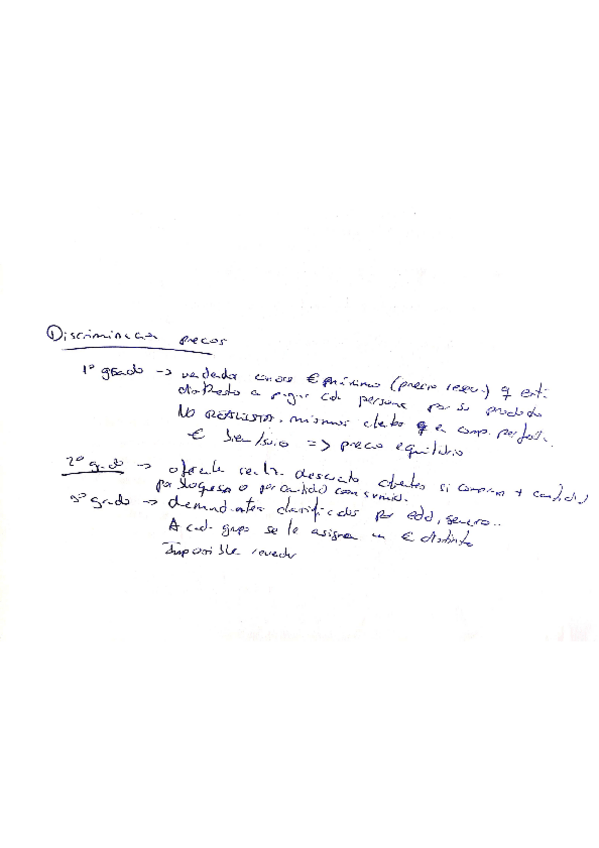 ① Discriminación precios
1º grado → vendedor conoce € máximo (precio reserv.) q está
dispuesto a pagar cada persona por su producto
NO REALISTA. mismos efectos q en comp. perfecta.
€ => precio equilibrio
2º grado → oferente descuento clientes si compran + cantidad
o por cantidad consumida.
3º grado → demandantes clasificados por edad, género..
A cada grupo se le asigna un € distinto
Imposible